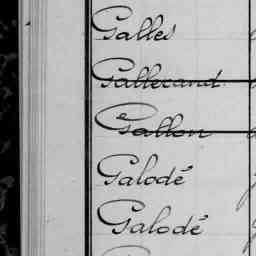 Galles
Gallerand
Gallon
Galodé
Galodé